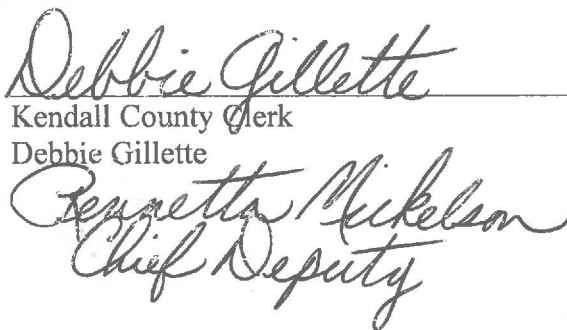 Debbie Gillette
Kendall County Clerk
Debbie Gillette
Rennetta Mickelson
Chief Deputy